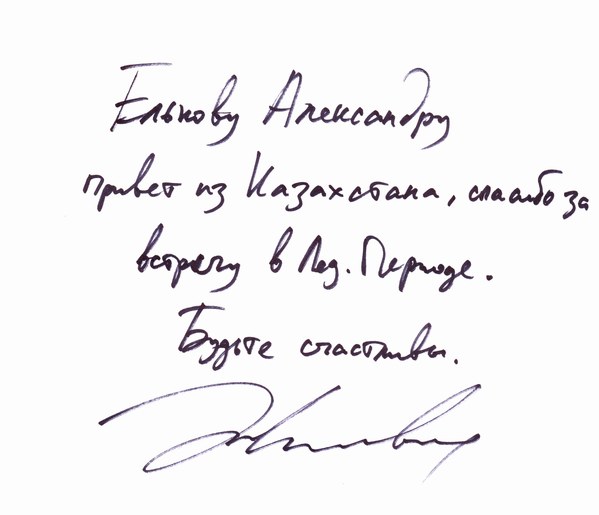 Елькову Александру
привет из Казахстана, спасибо за
встречу в Лед. Периоде.
Будьте счастливы.